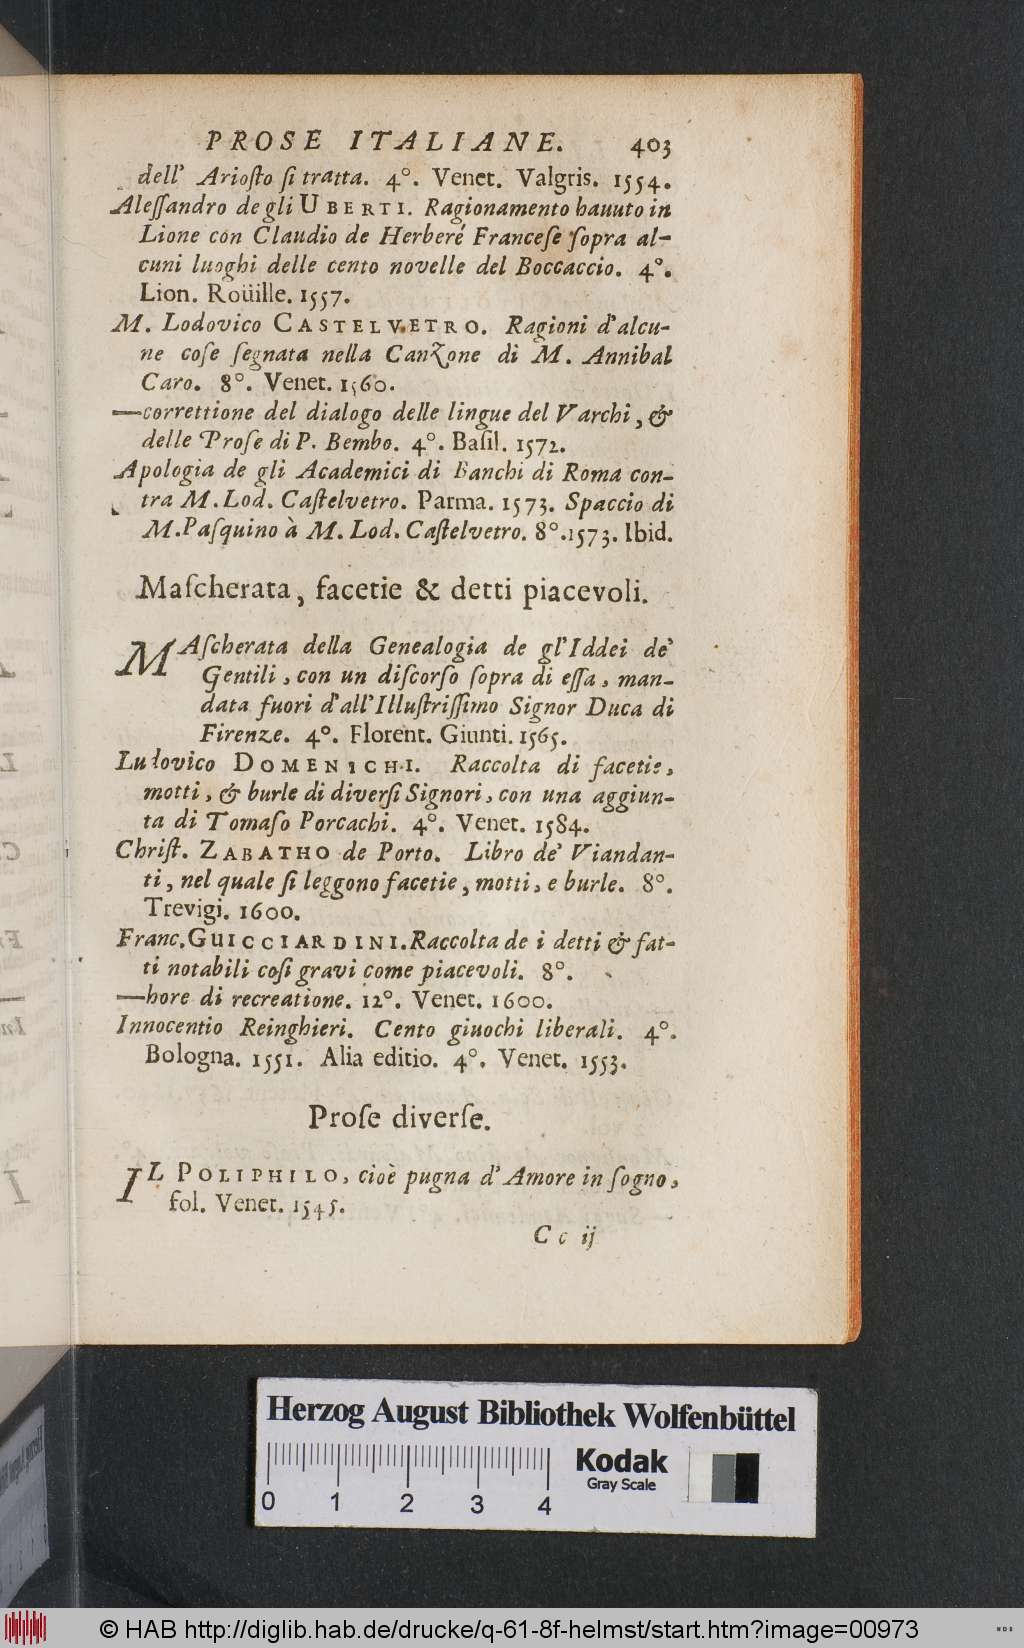 PROSE ITALIANE. 403
dell' Ariosto si tratta. 4°. Venet. Valgris. 1554.
Alessandro de gli UBERTI. Ragionamento hauuto in
Lione con Claudio de Herberé Francese sopra al-
cuni luoghi delle cento novelle del Boccaccio. 4°.
Lion. Roüille. 1557.
M. Lodovico CASTELVETRO. Ragioni d'alcu-
ne cose segnata nella Canzone di M. Annibal
Caro. 8°. Venet. 1560.
—correttione del dialogo delle lingue del Varchi, &
delle Prose di P. Bembo. 4°. Basil. 1572.
Apologia de gli Academici di Banchi di Roma con-
tra M. Lod. Castelvetro. Parma. 1573. Spaccio di
M. Pasquino à M. Lod. Castelvetro. 8°. 1573. Ibid.
Mascherata, facetie & detti piacevoli.
MAscherata della Genealogia de gl'Iddei de'
Gentili, con un discorso sopra di essa, man-
data fuori d'all'Illustrissimo Signor Duca di
Firenze. 4°. Florent. Giunti. 1565.
Ludovico DOMENICHI. Raccolta di facetie,
motti, & burle di diversi Signori, con una aggiun-
ta di Tomaso Porcachi. 4°. Venet. 1584.
Christ. ZABATHO de Porto. Libro de' Viandan-
ti, nel quale si leggono facetie, motti, e burle. 8°.
Trevigi. 1600.
Franc. GUICCIARDINI. Raccolta de i detti & fat-
ti notabili cosi gravi come piacevoli. 8°.
—hore di recreatione. 12°. Venet. 1600.
Innocentio Reinghieri. Cento giuochi liberali. 4°.
Bologna. 1551. Alia editio. 4°. Venet. 1553.
Prose diverse.
IL POLIPHILO, cioè pugna d'Amore in sogno,
fol. Venet. 1545.
Cc ij
Herzog August Bibliothek Wolfenbüttel
Kodak
Gray Scale
0 1 2 3 4
© HAB http://diglib.hab.de/drucke/q-61-8f-helmst/start.htm?image=00973